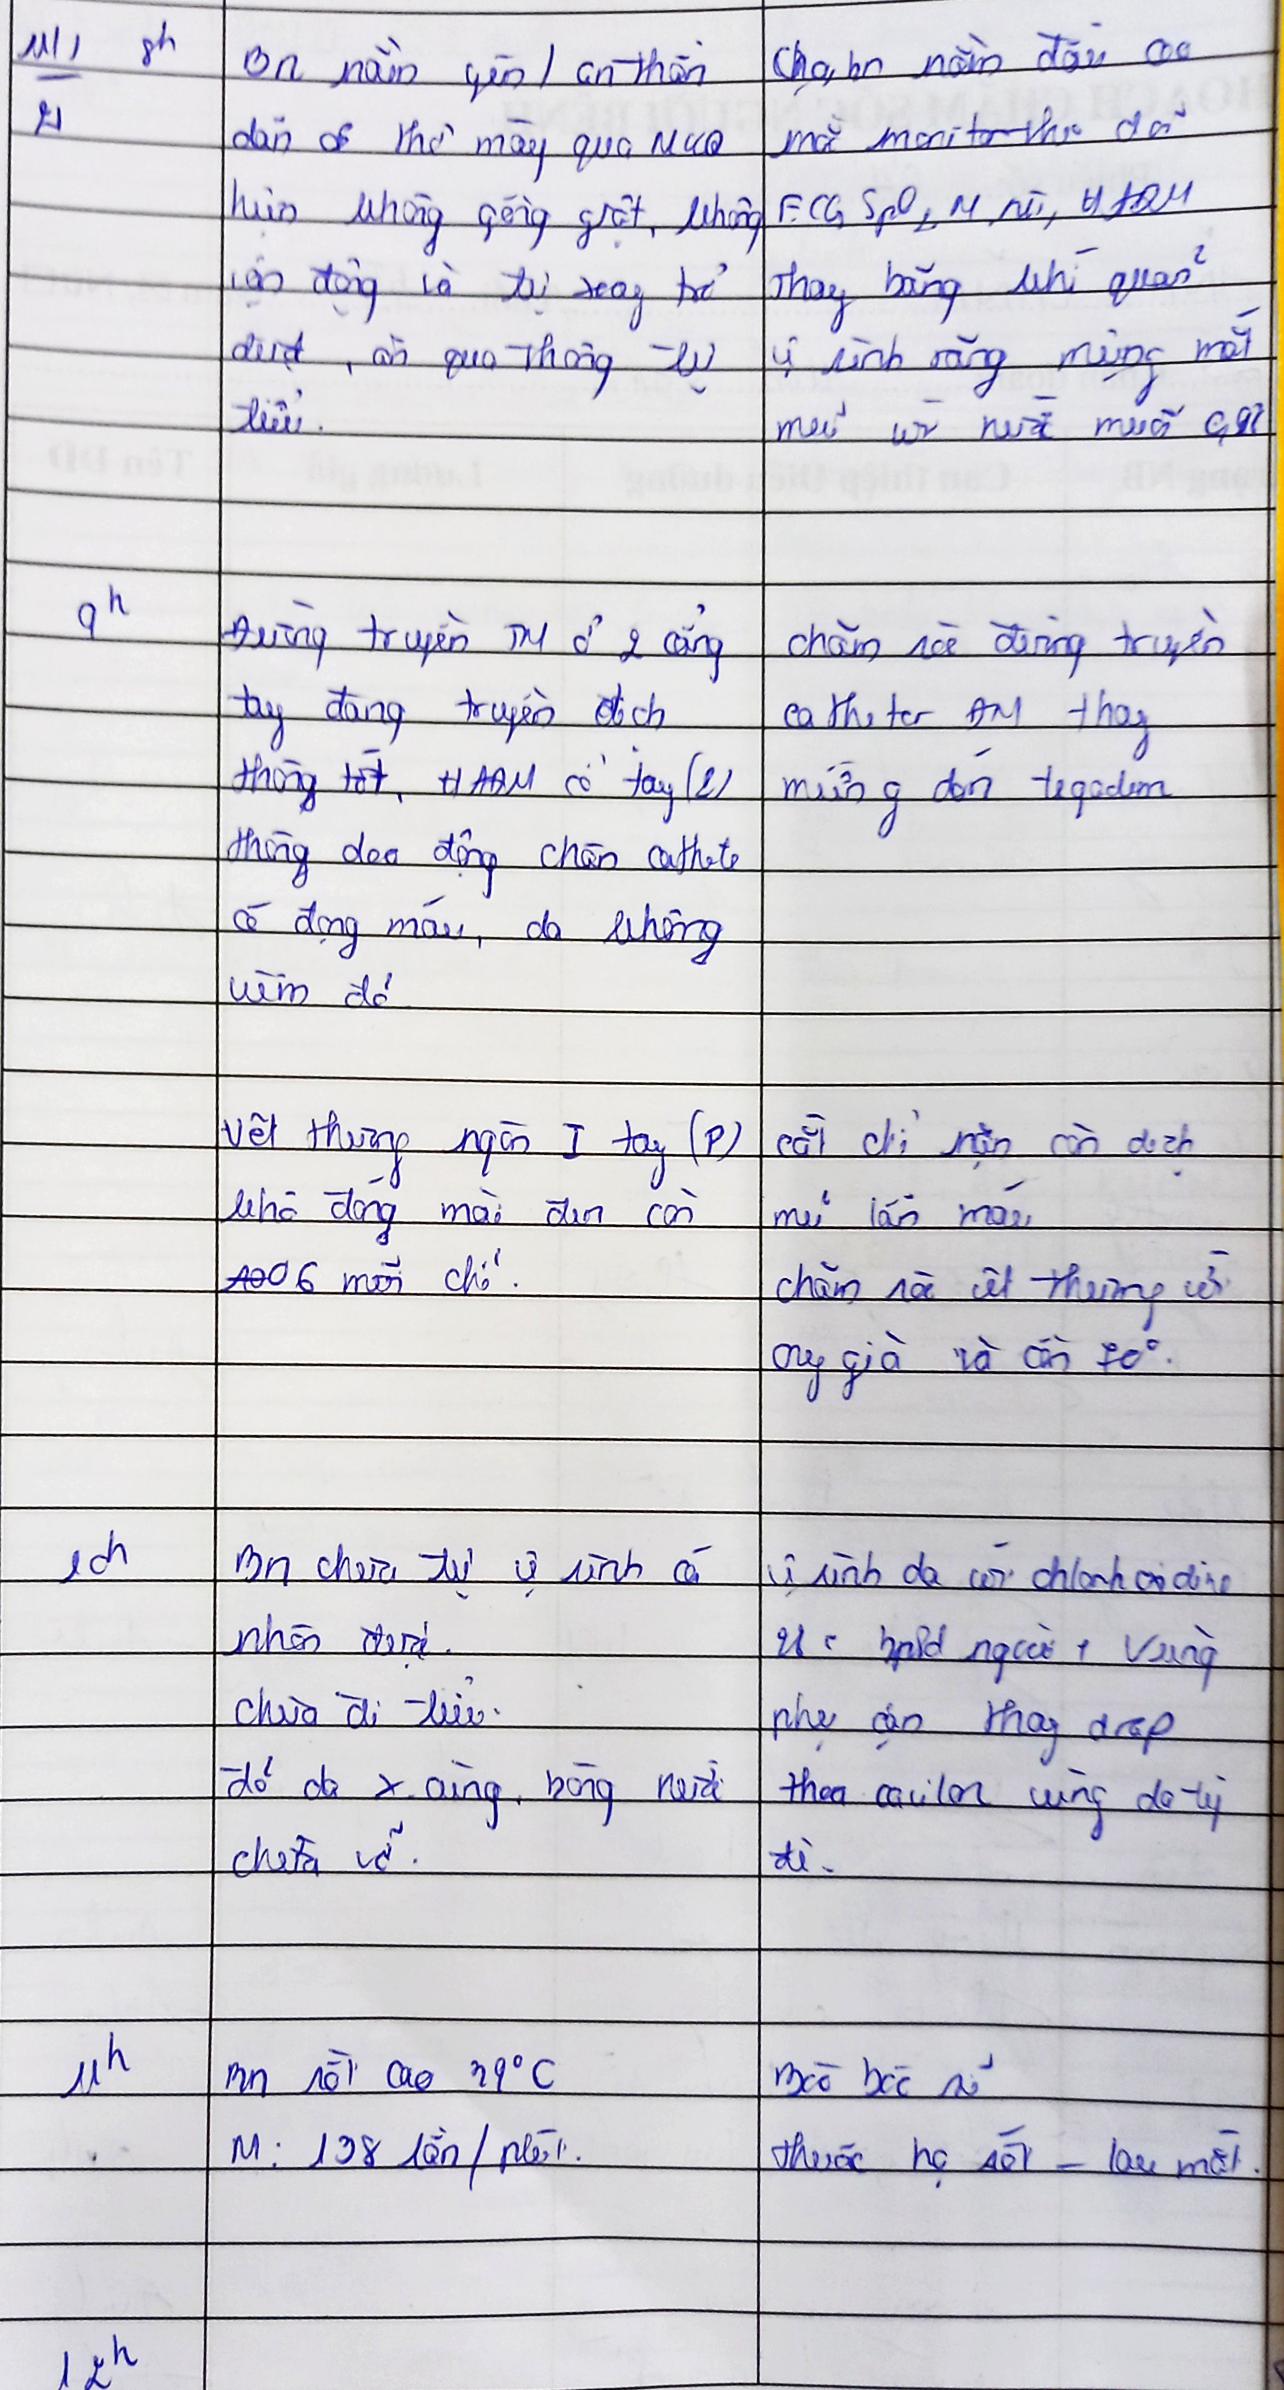 8h
Bn nằm yên / an thần
dãn cơ thở máy qua MKQ
hiện không gồng giật, không
vận động và tự xoay trở
được, ăn qua thông
tiểu.
Cho bn nằm đầu cao
mắc monitor theo dõi
ECG, SpO2, M, HAĐM
Thay băng khí quản
vệ sinh răng miệng mắt
mũi với nước muối 0,9%
9h
Đường truyền TM ở 2 cẳng
tay đang truyền dịch
thông tốt, HAĐM cổ tay (T)
thông dao động chân cathete
có đọng máu, da không
viêm đỏ
chăm sóc đường truyền
catheter ĐM thay
miếng dán tegadem
Vết thương ngón I tay (P)
khô đóng mài đen còn
06 mối chỉ.
cắt chỉ nặn còn dịch
mủ lẫn máu
chăm sóc vết thương với
oxy già và cồn 70°.
10h
Bn chưa tự vệ sinh cá
nhân được.
chưa đi tiêu.
đỏ da vùng, bóng nước
chưa vỡ.
vệ sinh da với chlorhexidine
bpsd ngoài + vùng
phụ cận thay drap
thoa cavilon vùng da tỳ
đè.
11h
Bn sốt cao 39°C
M: 138 lần/phút.
Báo bác sĩ
thuốc hạ sốt - lau mát.
12h